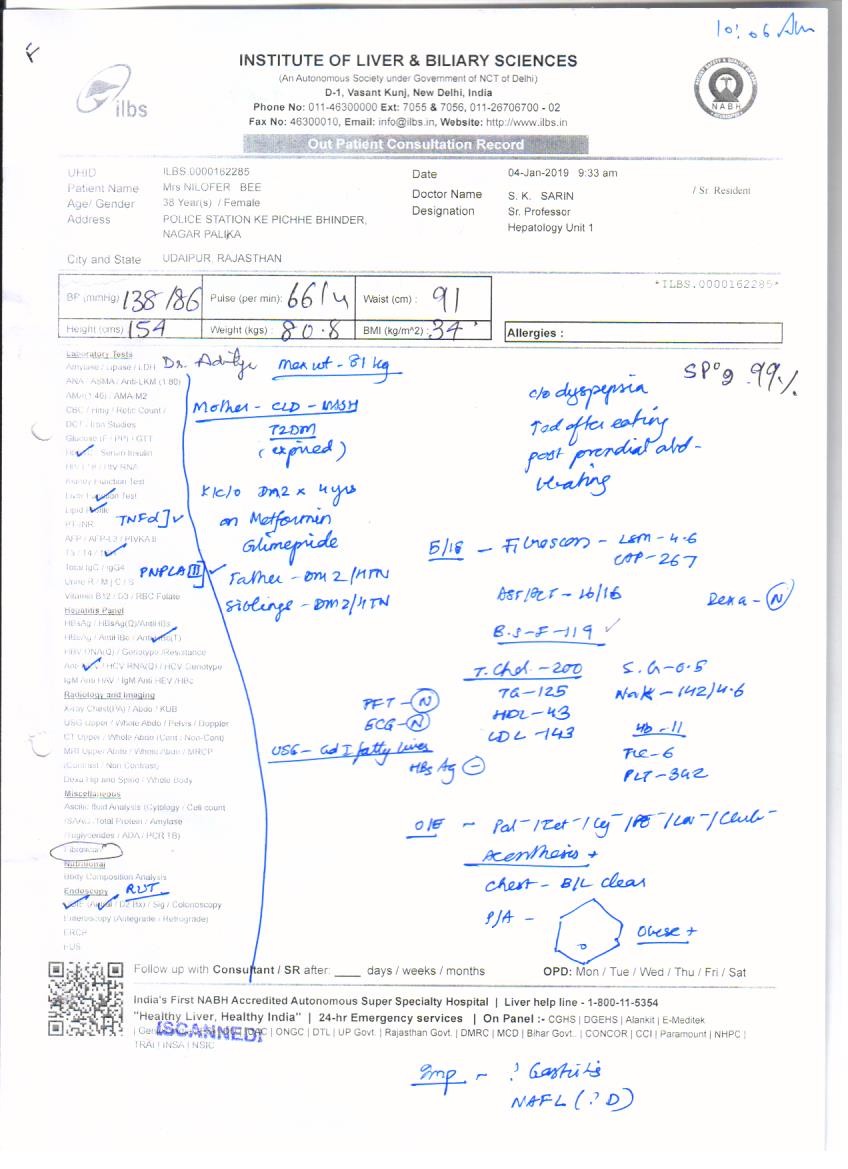 10:06 Am
INSTITUTE OF LIVER & BILIARY SCIENCES
(An Autonomous Society under Government of NCT of Delhi)
D-1, Vasant Kunj, New Delhi, India
Phone No: 011-46300000 Ext: 7055 & 7056, 011-26706700 - 02
Fax No: 46300010, Email: info@ilbs.in, Website: http://www.ilbs.in
ilbs
NABH
Out Patient Consultation Record
UHID ILBS.0000162285 Date 04-Jan-2019 9:33 am
Patient Name Mrs NILOFER BEE Doctor Name S. K. SARIN / Sr. Resident
Age/ Gender 38 Year(s) / Female Designation Sr. Professor
Hepatology Unit 1
Address POLICE STATION KE PICHHE BHINDER,
NAGAR PALIKA
City and State UDAIPUR, RAJASTHAN
*ILBS.0000162285*
BP (mmHg) 138/86 Pulse (per min): 66/ Waist (cm) : 91
Height (cms) 154 Weight (kgs) : 80.8 BMI (kg/m^2) : 34
Allergies :
Laboratory Tests
Amylase / Lipase / LDH
ANA / ASMA / Anti-LKM (1:80)
AMA(1:40) / AMA-M2
CBC / Hmg / Retic Count /
DCT / Iron Studies
Glucose (F / PP) / GTT
Serum Insulin
Kidney Function Test
Liver Function Test
Lipid Profile
PT-INR
AFP / AFP-L3 / PIVKA II
T3 / T4 /
Total IgG / IgG4
Urine R / M | C / S
Vitamin B12 / D3 / RBC Folate
Hepatitis Panel
HBsAg / HBsAg(Q)/AntiHBs
HBeAg / AntiHBe /
HBV DNA(Q) / Genotype /Resistance
HCV RNA(Q) / HCV Genotype
IgM Anti HAV / IgM Anti HEV /HBc
Radiology and Imaging
X-ray Chest(PA) / Abdo / KUB
USG Upper / Whole Abdo / Pelvis / Doppler
CT Upper / Whole Abdo (Cont / Non-Cont)
MRI Upper Abdo / Whole Abdo / MRCP
(Contrast / Non Contrast)
Dexa Hip and Spine / Whole Body
Miscellaneous
Ascitic fluid Analysis (Cytology / Cell count
/SAAG /Total Protein / Amylase
/Triglycerides / ADA / PCR TB)
Fibroscan
Nutritional
Body Composition Analysis
Endoscopy
/ D2 Bx) / Sig / Colonoscopy
Enteroscopy (Antegrade / Retrograde)
ERCP
EUS
TNFα
PNPLA3
RUT
Dr. Aditya
max wt - 81 kg
Mother - CLD - NASH
T2DM
(expired)
K/c/o DM2 x 4 yrs
on Metformin
Glimepride
Father - DM2/HTN
Siblings - DM2/HTN
PFT - N
ECG - N
USG - Gd I fatty liver
HBsAg -
SPO2 99%
c/o dyspepsia
after eating
post prandial abd-
bloating
5/18 - Fibroscan - LSM - 4.6
CAP - 267
AST/ALT - 16/16
Dexa - N
B.S-F-119
T. Chol. - 200
TG - 125
HDL - 43
LDL - 143
S. Cr - 0.5
Na/K - 142/4.6
Hb - 11
TLC - 6
PLT - 392
O/E -
Acanthosis +
Chest - B/L clear
P/A -
Obese +
Follow up with Consultant / SR after: ____ days / weeks / months OPD: Mon / Tue / Wed / Thu / Fri / Sat
India's First NABH Accredited Autonomous Super Specialty Hospital | Liver help line - 1-800-11-5354
"Healthy Liver, Healthy India" | 24-hr Emergency services | On Panel :- CGHS | DGEHS | Alankit | E-Meditek
| ONGC | DTL | UP Govt. | Rajasthan Govt. | DMRC | MCD | Bihar Govt.. | CONCOR | CCI | Paramount | NHPC |
TRAI | INSA | NSIC
SCANNED
Imp - ? Gastritis
NAFL (? D)